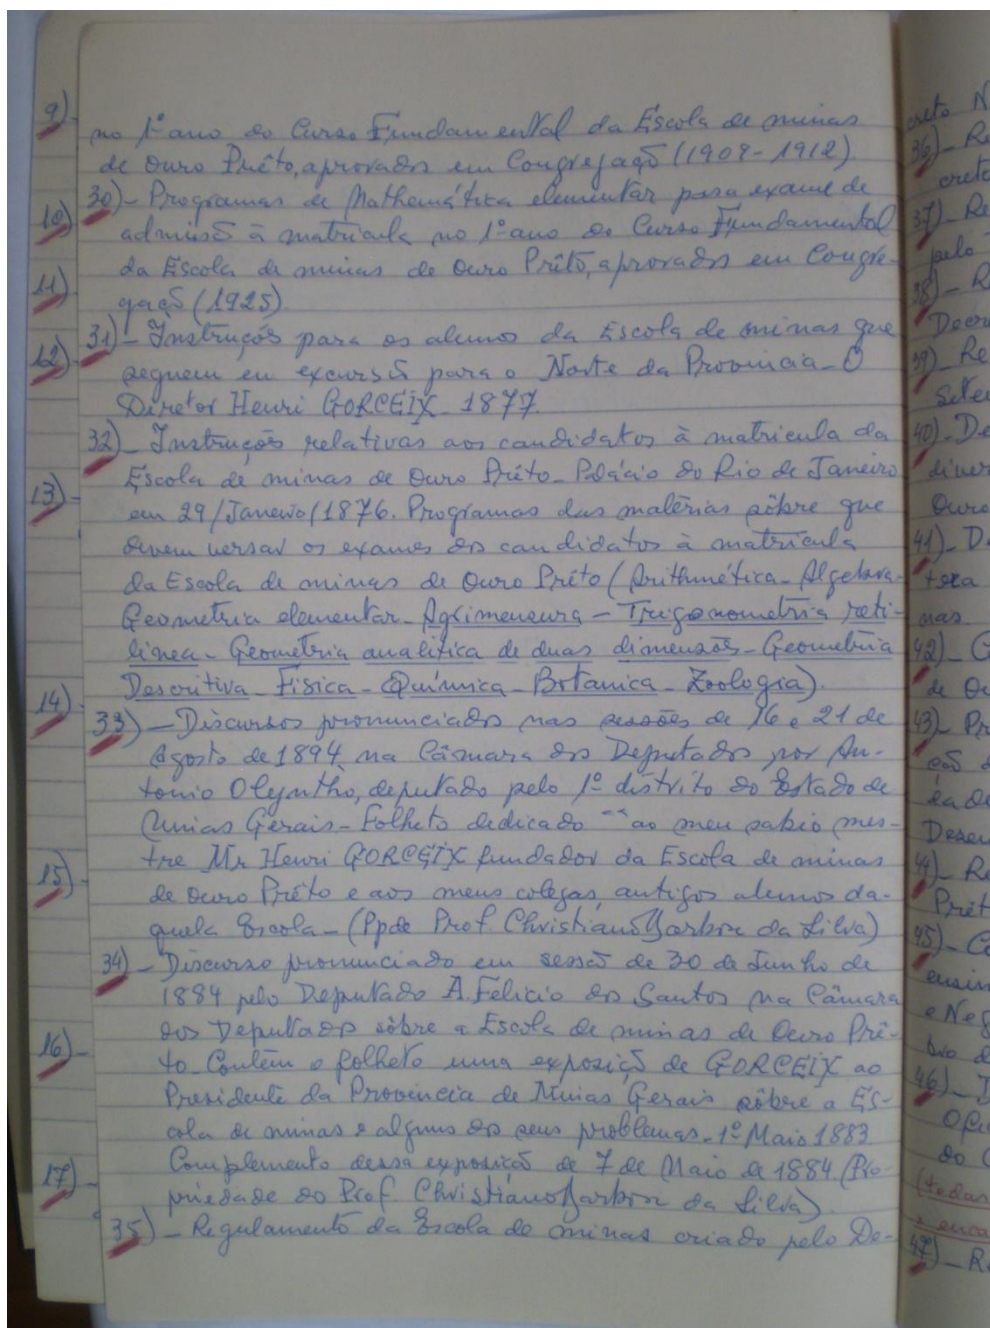 9)
10)
11)
12)
13)
14)
15)
16)
17)
no 1º ano do Curso Fundamental da Escola de minas
de Ouro Prêto, aprovados em Congregaçõ (1909-1912).
30) - Programas de Mathemática elementar para exame de
admissõ à matrícula no 1º ano do Curso Fundamental
da Escola de minas de Ouro Prêto, aprovados em Congre-
gaçõ (1925).
31) - Instruçõs para os alunos da Escola de minas que
seguem em excursõ para o Norte da Provincia - O
Diretor Henri GORCEIX - 1877.
32) - Instruçõs relativas aos candidatos à matricula da
Escola de minas de Ouro Prêto - Palácio do Rio de Janeiro
em 29/Janeiro/1876. Programas das matérias sôbre que
devem versar os exames dos candidatos à matrícula
da Escola de minas de Ouro Prêto (Arithmética - Algebra -
Geometria elementar - Agrimensura - Trigonometria reti-
linea - Geometria analítica de duas dimensõs - Geometria
Descritiva - Física - Química - Botanica - Zoologia).
33) - Discursos pronunciados nas sessões de 16 e 21 de
Agosto de 1894, na Câmara dos Deputados por An-
tonio Olyntho, deputado pelo 1º distrito do Estado de
Minas Gerais - Folheto dedicado "ao meu sabio mes-
tre Mr Henri GORCEIX fundador da Escola de minas
de Ouro Prêto e aos meus colegas, antigos alunos da-
quela Escola - (Ppde Prof. Christiano Barbosa da Silva)
34) - Discurso pronunciado em sessõ de 30 de Junho de
1884 pelo Deputado A. Felicio dos Santos na Câmara
dos Deputados sôbre a Escola de minas de Ouro Prê-
to - Contêm o folheto uma exposiçõ de GORCEIX ao
Presidente da Provincia de Minas Gerais sôbre a Es-
cola de minas e alguns dos seus problemas - 1º Maio 1883
Complemento dessa exposiçõ de 7 de Maio de 1884. (Pro-
priedade do Prof. Christiano Barbosa da Silva).
35) - Regulamento da Escola de minas criado pelo De-
creto N
36) - Re
creto
37) - Re
pelo
38) - R
Decre
39) - Re
Setem
40) - De
diver
Ouro
41) - D
nas
42) - C
de Ou
43) - Pr
Desen
44) - Re
Prêt
45) - Co
ensin
e Neg
46) - I
Ofic
do C
(todas
47) - R